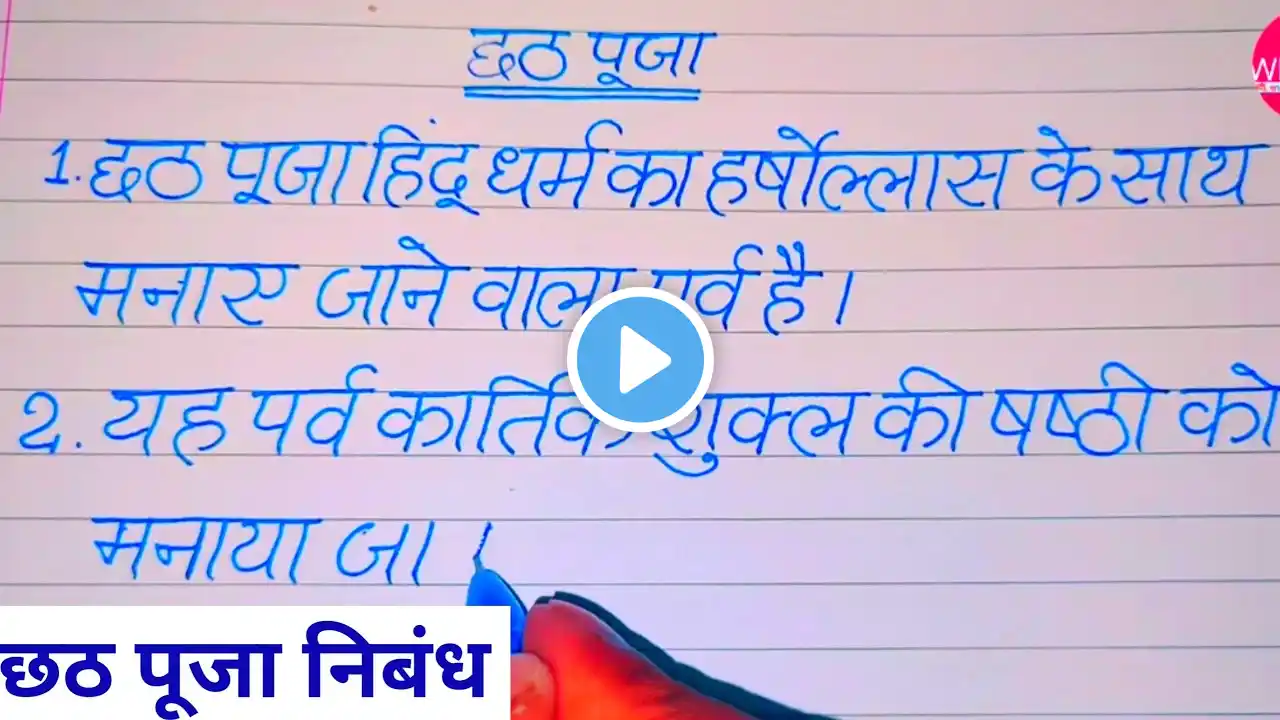 छठ पूजा
1. छठ पूजा हिंदू धर्म का हर्षोल्लास के साथ
मनाए जाने वाला पर्व है।
2. यह पर्व कार्तिक शुक्ल की षष्ठी को
मनाया जा
छठ पूजा निबंध